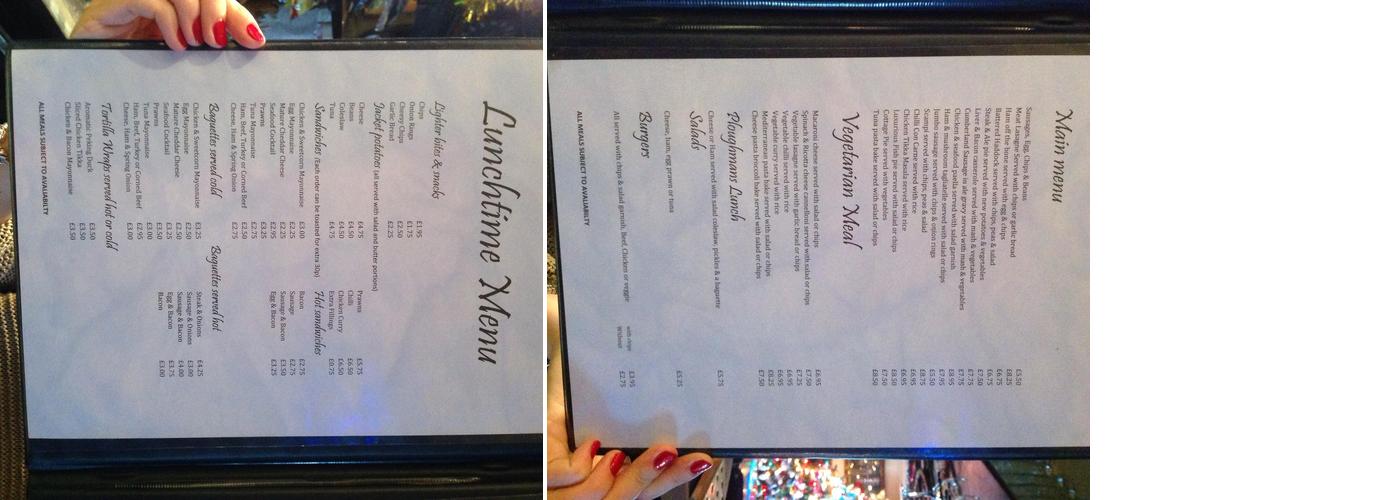 Lunchtime Menu
Lighter bites & snacks
Chips £1.95
Onion Rings £1.75
Cheesy Chips £2.50
Garlic Bread £2.25
Jacket potatoes (all served with salad and butter portions)
Cheese £4.75
Beans £4.50
Coleslaw £4.50
Tuna £4.75
Prawns £5.75
Chilli £6.50
Chicken Curry £6.50
Extra Fillings £0.75
Sandwiches (Each order can be toasted for extra 30p)
Chicken & Sweetcorn Mayonnaise £3.00
Egg Mayonnaise £2.25
Mature Cheddar Cheese £2.25
Seafood Cocktail £2.95
Prawns £3.25
Tuna Mayonnaise £2.75
Ham, Beef, Turkey or Corned Beef £2.50
Cheese, Ham & Spring Onion £2.75
Hot sandwiches
Bacon £2.75
Sausage £2.75
Sausage & Bacon £3.50
Egg & Bacon £3.25
Baguettes served cold
Chicken & Sweetcorn Mayonnaise £3.25
Egg Mayonnaise £2.50
Mature Cheddar Cheese £2.50
Seafood Cocktail £3.25
Prawns £3.50
Tuna Mayonnaise £3.00
Ham, Beef, Turkey or Corned Beef £2.95
Cheese, Ham & Spring Onion £3.00
Baguettes served hot
Steak & Onions £4.25
Sausage & Onions £3.00
Sausage & Bacon £4.00
Egg & Bacon £3.75
Bacon £3.00
Tortilla Wraps served hot or cold
Aromatic Peking Duck £3.50
Sliced Chicken Tikka £3.50
Chicken & Bacon Mayonnaise £3.50
ALL MEALS SUBJECT TO AVAILABILTY
Main menu
Sausages, Egg, Chips & Beans £5.50
Meat Lasagne Served with chips or garlic bread £8.25
Ham off the bone served with egg & chips £6.75
Battered Haddock served with chips, peas & salad £6.75
Steak & Ale pie served with new potatoes & vegetables £7.50
Liver & Bacon casserole served with mash & vegetables £7.75
Cumberland Sausage in ale gravy served with mash & vegetables £7.75
Chicken & seafood paella served with salad garnish £8.95
Ham & mushroom tagliatelle served with salad or chips £7.95
Jumbo sausage served with chips & onion rings £5.50
Scampi served with chips, peas & salad £8.75
Chilli Con Carne served with rice £6.95
Chicken Tikka Masala served with rice £6.95
Luxurious Fish pie served with salad or chips £8.50
Cottage Pie served with vegetables £7.50
Tuna pasta bake served with salad or chips £8.50
Vegetarian Meal
Macaroni cheese served with salad or chips £6.95
Spinach & Ricotta cheese cannelloni served with salad or chips £7.50
Vegetable lasagne served with garlic bread or chips £7.25
Vegetable chilli served with rice £6.95
Vegetable curry served with rice £6.95
Mediterranean pasta bake served with salad or chips £8.25
Cheese pasta broccoli bake served with salad or chips £7.50
Ploughmans Lunch
Cheese or Ham served with salad coleslaw, pickles & a baguette £5.75
Salads
Cheese, ham, egg prawn or tuna £5.25
Burgers
with chips £3.95
All served with chips & salad garnish, Beef, Chicken or veggie Without £2.75
ALL MEALS SUBJECT TO AVALIABILTY